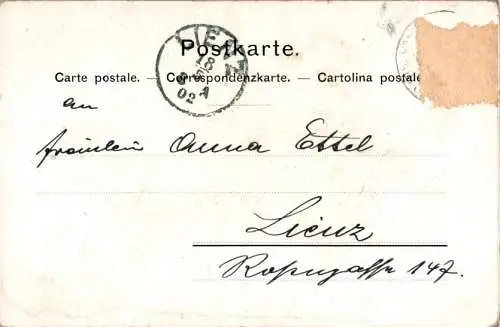 Postkarte.
Carte postale. — Correspondenzkarte. — Cartolina postale
LIENZ
18
8
02
an
Fräulein Anna Ettel
Lienz
147.